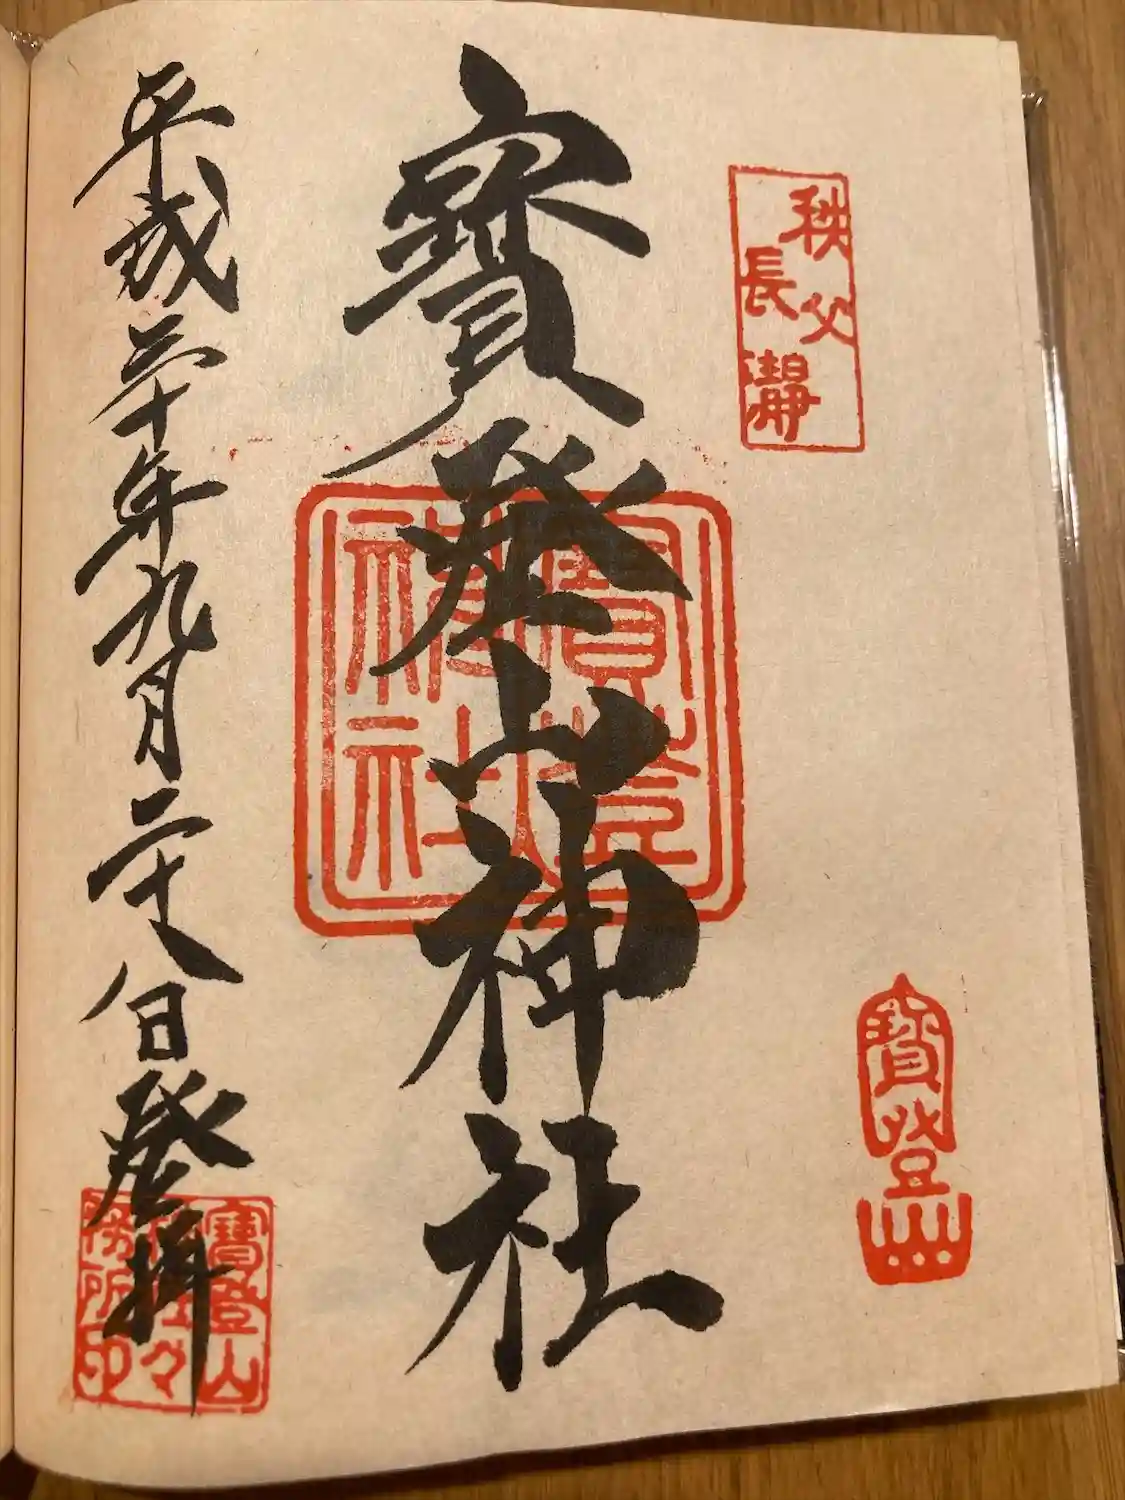 秩父
長瀞
寳登山
寳登山神社
平成三十年九月二十八日登拝
寶登山
神社々
務所印